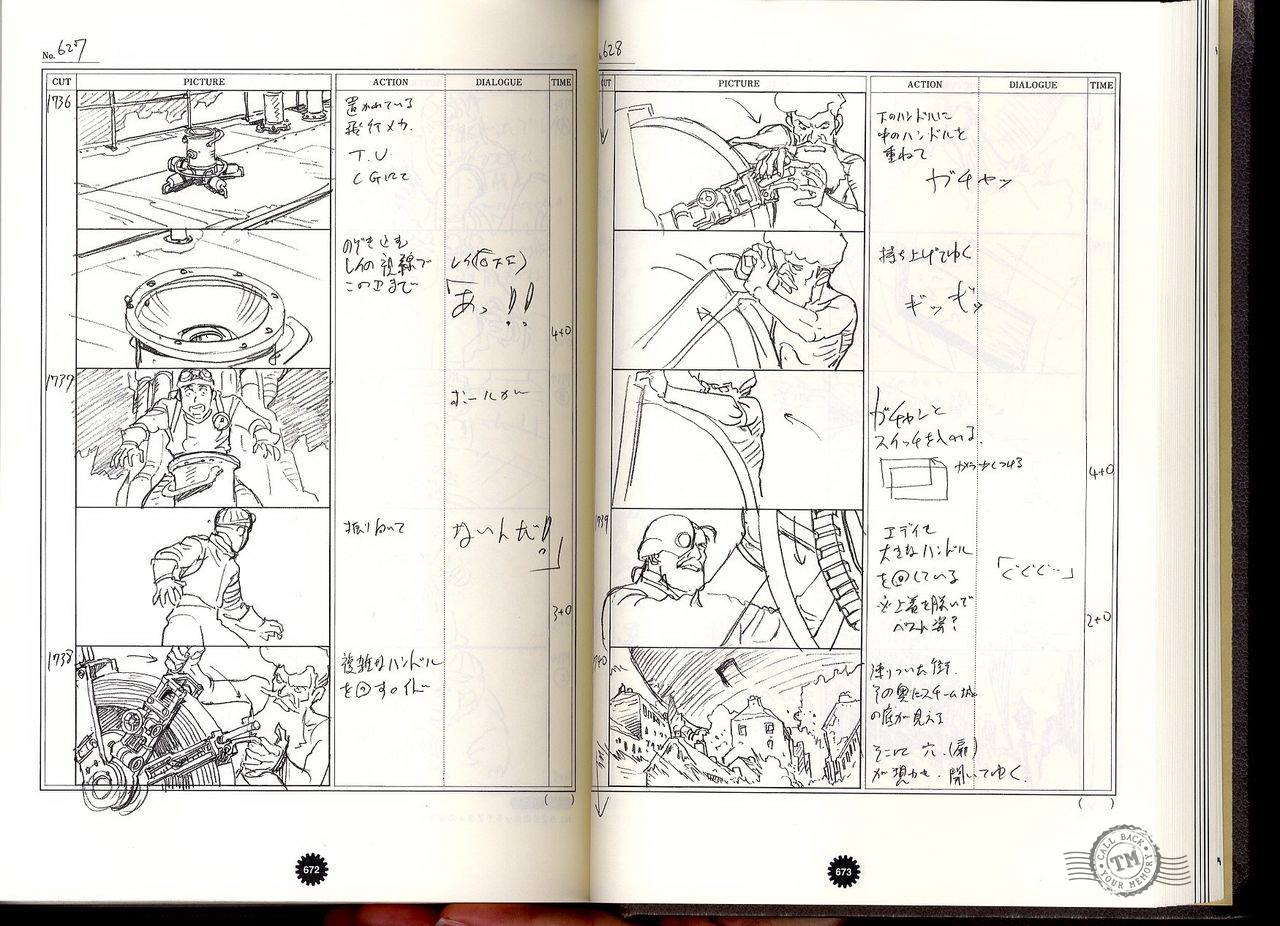 No. 627
CUT PICTURE ACTION DIALOGUE TIME
1736
置かれている
飛行メカ.
T.U
CGにて
のぞき込む
レイの視線で
この
まで
レイ
「あっ!!
4+0
1737
ボールが
振り向いて
ないんだ!
」
3+0
1738
複雑なハンドル
を
672
628
CUT PICTURE ACTION DIALOGUE TIME
下のハンドルに
中のハンドルを
重ねて
ガチャッ
持ち上げてゆく
ギッギッ
ガチャンと
スイッチを入れる.
4+0
1739
エディも
大きなハンドル
を回している
※上着を脱いで
ベスト姿?
「ぐぐぐ…」
2+0
1740
凍りついた街.
その奥にスチーム城
の底が見える
そこに 穴.(扉)
が 開いてゆく.
673
CALL BACK
TM
YOUR MEMORY